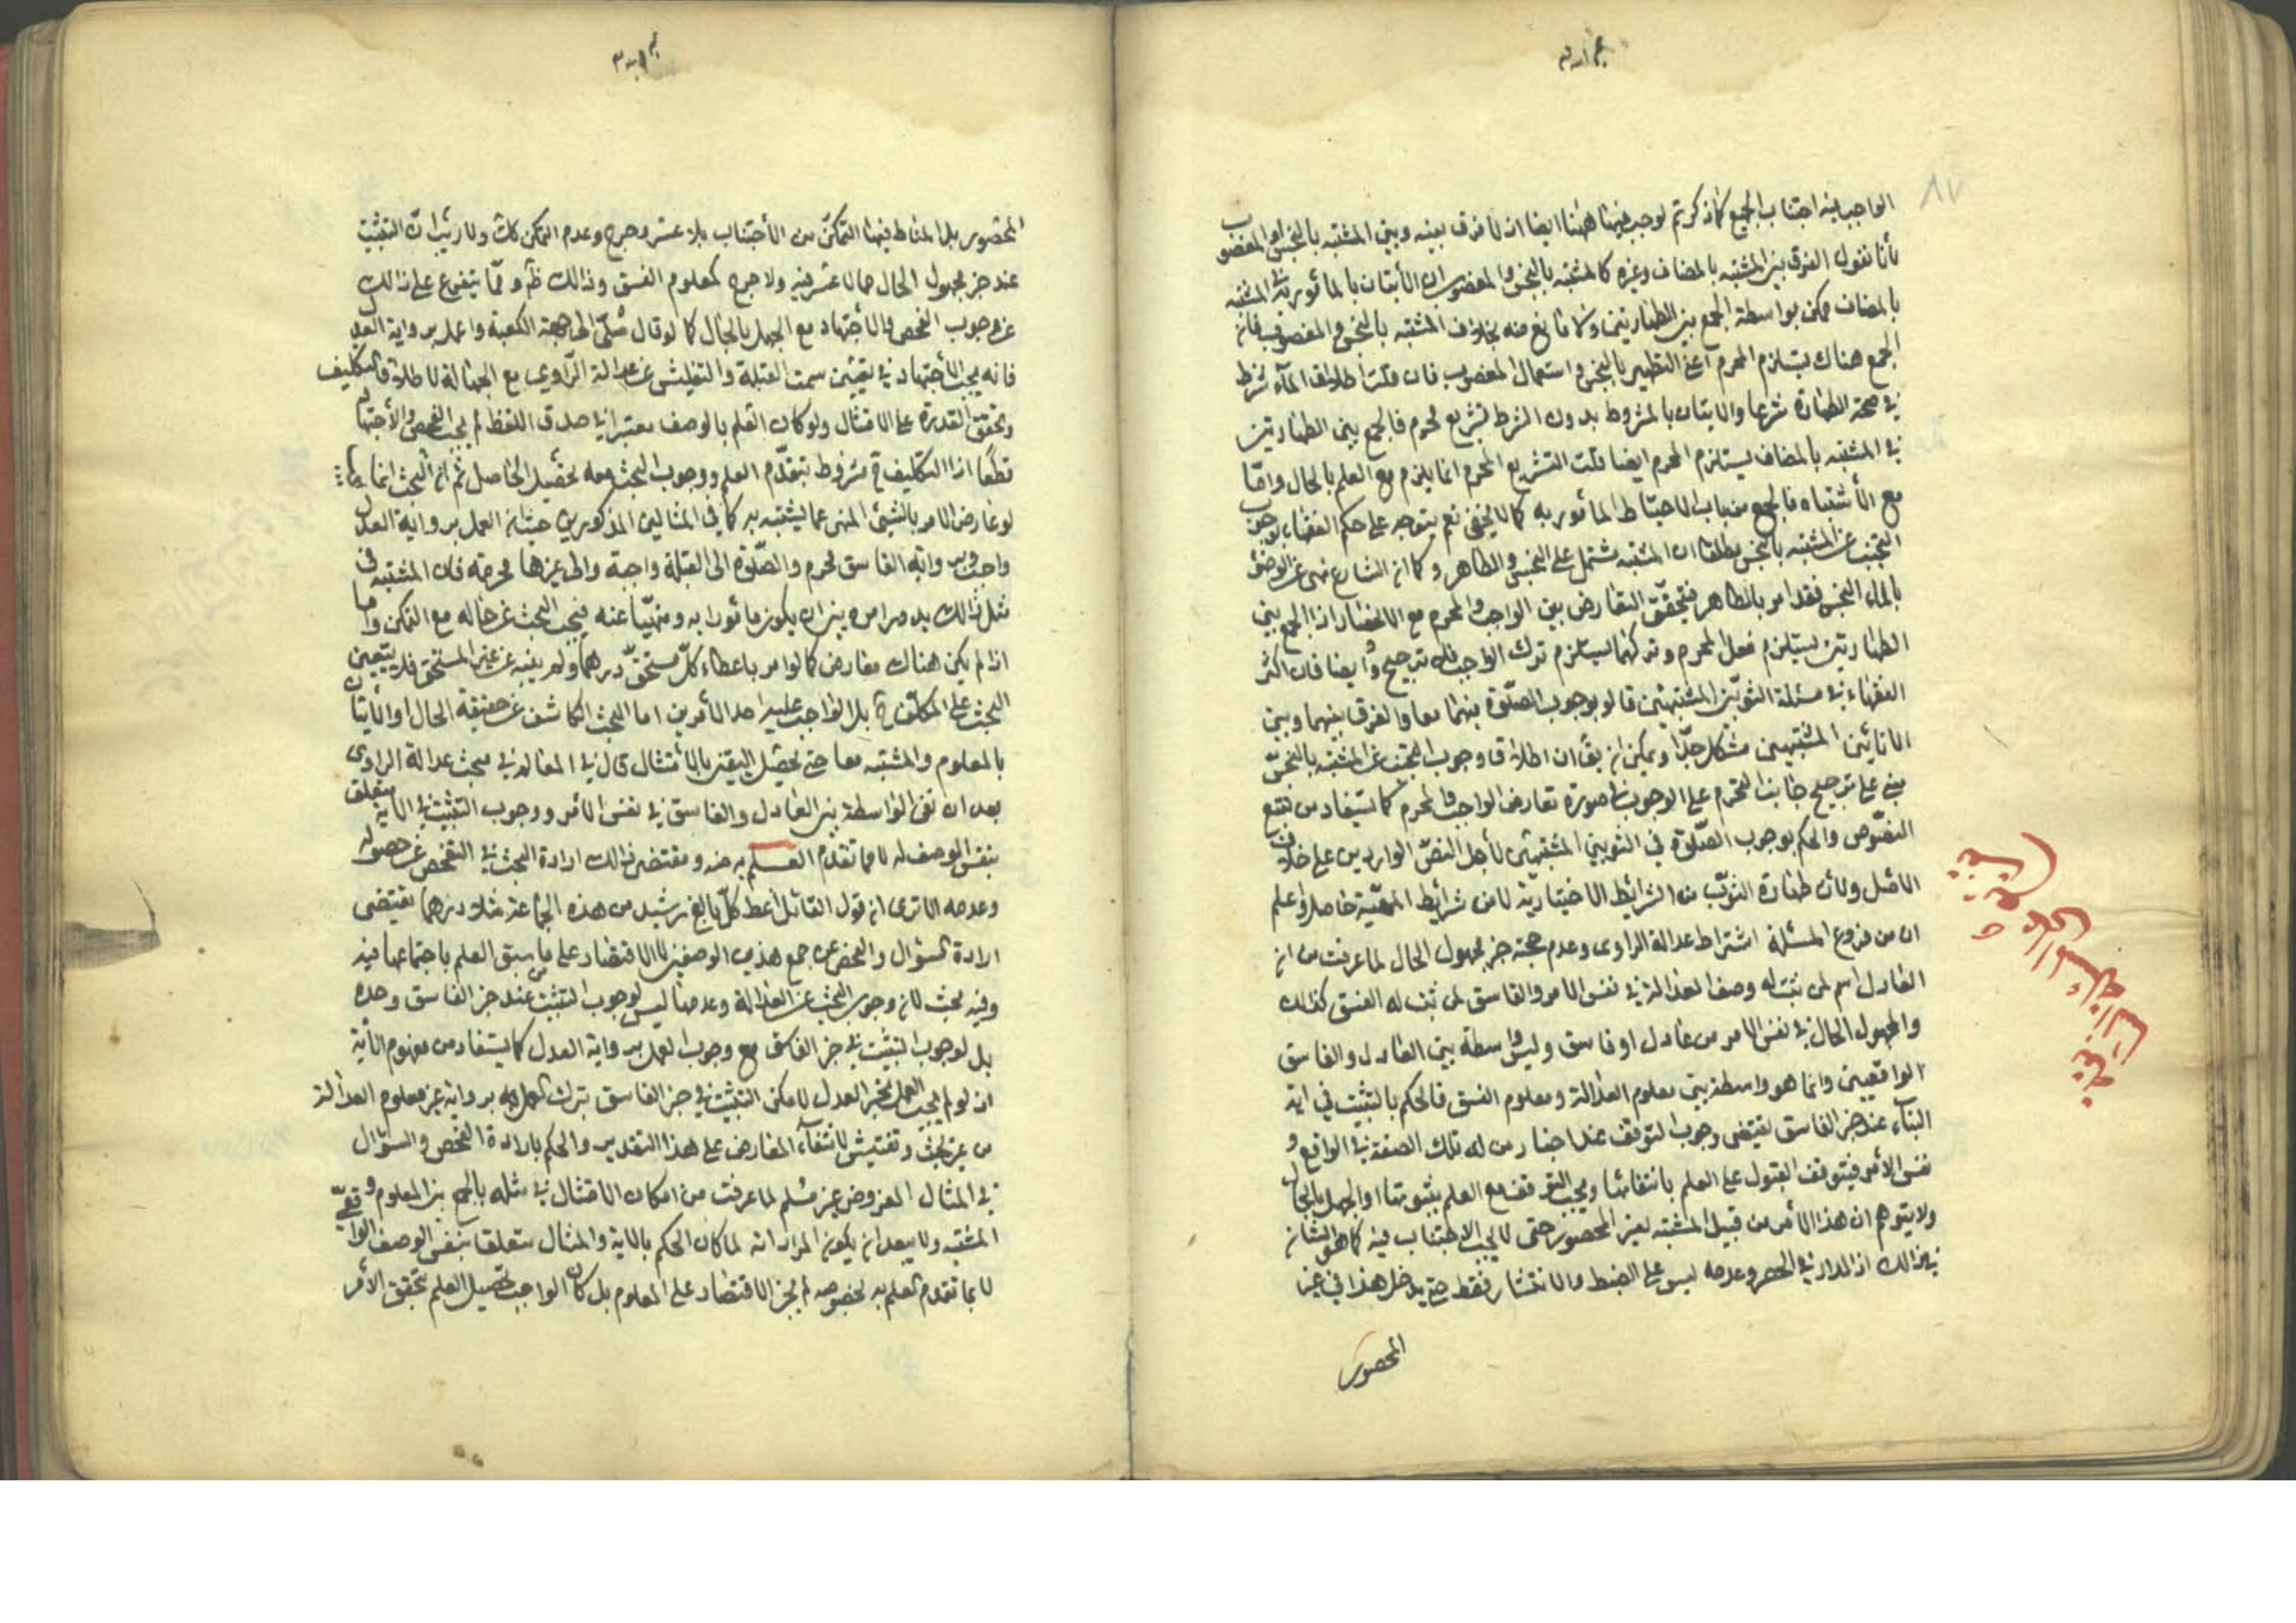 الواجب فيه اجتناب الجميع كما ذكرتم لوجب فيهما ههنا ايضا اذ لا فرق بينه وبين المشتبه بالنجس او المغصوب
لأنا نقول الفرق بين المشتبه بالمضاف وغيره كالمشتبه بالنجس والمغصوب ان الأتيان بالمأمور به في المشتبه
بالمضاف ممكن بواسطة الجمع بين الطهارتين ولا مانع منه بخلاف المشتبه بالنجس والمغصوب فان
الجمع هناك يستلزم المحرم اعني التطهير بالنجس واستعمال المغصوب فان قلت اطلاق الماء شرط
في صحة الطهارة شرعا والاتيان بالمشروط بدون الشرط تشريع محرم فالجمع بين الطهارتين
في المشتبه بالمضاف يستلزم المحرم ايضا قلت التشريع المحرم انما يلزم مع العلم بالحال واما
مع الأشتباه فالجمع من باب الاحتياط المأمور به كما لا يخفى نعم يتوجه على حكم الفقهاء بوجوب
التجنب عن المشتبه بالنجس مطلقا ان المشتبه مشتمل على النجس والطاهر وكما ان الشارع نهى عن الوضوء
بالماء النجس فقد امر بالطاهر فيتحقق التعارض بين الواجب والمحرم مع الانحصار اذ الجمع بين
الطهارتين يستلزم فعل المحرم وتركهما يستلزم ترك الواجب فلا ترجيح وأيضا فان اكثر
الفقهاء في مسئلة الثوبين المشتبهين قالو بوجوب الصلوة فيهما معا والفرق بينهما وبين
الانائين المشتبهين مشكل جدا ويمكن ان يقأ ان اطلاق وجوب التجنب عن المشتبه بالنجس
مبني على ترجيح جانب التحريم على الوجوب في صورة تعارض الواجب والمحرم كما يستفاد من تتبع
النصوص والحكم بوجوب الصلوة في الثوبين المشتبهين لأجل النص الوارد من على خلاف
الاصل ولأن طهارة الثوب من الشرائط الاختيارية لا من شرائط الصحة واعلم
ان من فروع المسئلة اشتراط عدالة الراوى وعدم حجية خبر مجهول الحال لما عرفت من ان
العادل اسم لمن ثبت له وصف العدالة في نفس الامر والفاسق لمن ثبت له الفسق كذلك
والمجهول الحال في نفس الامر من عادل او فاسق وليس واسطة بين العادل والفاسق
الواقعيين وانما هو واسطة بين معلوم العدالة ومعلوم الفسق فالحكم بالتثبت في اية
النباء عند خبر الفاسق يقتضى وجوب التوقف عند اخبار من له تلك الصفة في الواقع و
نفس الأمر فيتوقف القبول على العلم بانتفائها ويجب التوقف مع العلم بثبوتها او الجهل بالحال
ولا يتوهم ان هذا الأمر من قبيل المشتبه لغير المحصور حتى لا يجب الاجتناب فيه كما هو الشان
في ذالك اذ المدار في الحصر وعدمه ليس على الضبط والانتشار فقط حتى يدخل هذا في غير
المحصور
المحصور بل المناط فيهما التمكن من الأجتناب بلا عسر وحرج وعدم التمكن كك ولا ريب ان التثبت
عند خبر مجهول الحال مما لا عسر فيه ولا حرج كمعلوم الفسق وذالك ظ ومما يتفرع على ذالك
وجوب الفحص والأجتهاد مع الجهل بالحال كما لو قال صلّ الى جهة الكعبة واعمل برواية العدل
فانه يجب الأجتهاد في تعيين سمت القبلة والتفتيش عن عدالة الراوي مع الجهالة لاطلاق التكليف
وتحقق القدرة على الامتثال ولو كان العلم بالوصف معتبرا في صدق اللفظ لم يجب الفحص والأجتهاد
قطعا اذ التكليف ح مشروط بتقدم العلم ووجوب البحث معه تحصيل الحاصل ثم ان البحث انما يجب
لو عارض الامر بالشيئ المنهى عما يشتبه به كما في المثالين المذكورين حيث ان العمل برواية العدل
واجب ورواية الفاسق محرم والصلوة الى القبلة واجبة والى غيرها محرمة فان المشتبه في
مثل ذالك يدور امره بين ان يكون مأمورا به ومنهيا عنه فيجب البحث عن حاله مع التمكن واما
اذا لم يكن هناك معارض كما لو امر باعطاء كل مستحق درهما ولم ينه عن غير المستحق فلا يتعين
البحث على المكلف ح بل الواجب عليه احد الأمرين اما البحث الكاشف عن حقيقة الحال او الأتيان
بالمعلوم والمشتبه معا حتى يحصل اليقين بالأمتثال قال في المعالم في مبحث عدالة الراوى
بعد ان نفى الواسطة بين العادل والفاسق في نفس الأمر ووجوب التثبت في الاية متعلق
بنفس الوصف له لا مما تقدم العلم به منه ومقتضى ذالك ارادة البحث في التفحص عن حصوله
وعدمه الا ترى ان قول القائل أعط كل بالغ رشيد من هذه الجماعة مثلا درهما يقتضى
ارادة السؤال والفحص عن جمع هذين الوصفين لا الاقتصار على من سبق العلم باجتماعهما فيه
وفيه بحث لان وجوب البحث عن العدالة وعدمها ليس لوجوب التثبت عند خبر الفاسق وحده
بل لوجوب التثبت في خبر الفاسق مع وجوب العمل برواية العدل كما يستفاد من مفهوم الأية
اذ لو لم يجب العمل بخبر العدل لامكن التثبت في خبر الفاسق بترك العمل برواية غير معلوم العدالة
من غير بحث وتفتيش لانتفاء المعارض على هذا التقدير والحكم بارادة الفحص والسؤال
في المثال المفروض غير مسلم لما عرفت من امكان الامتثال في مثله بالجمع بين المعلوم و
المشتبه ولا يبعد ان يكون المراد انه لما كان الحكم بالاية والمثال متعلقا بنفس الوصف الواقعي
لا بما تقدم العلم به بخصوصه لم يجز الاقتصار على المعلوم بل كان الواجب تحصيل العلم بتحقق الأمر